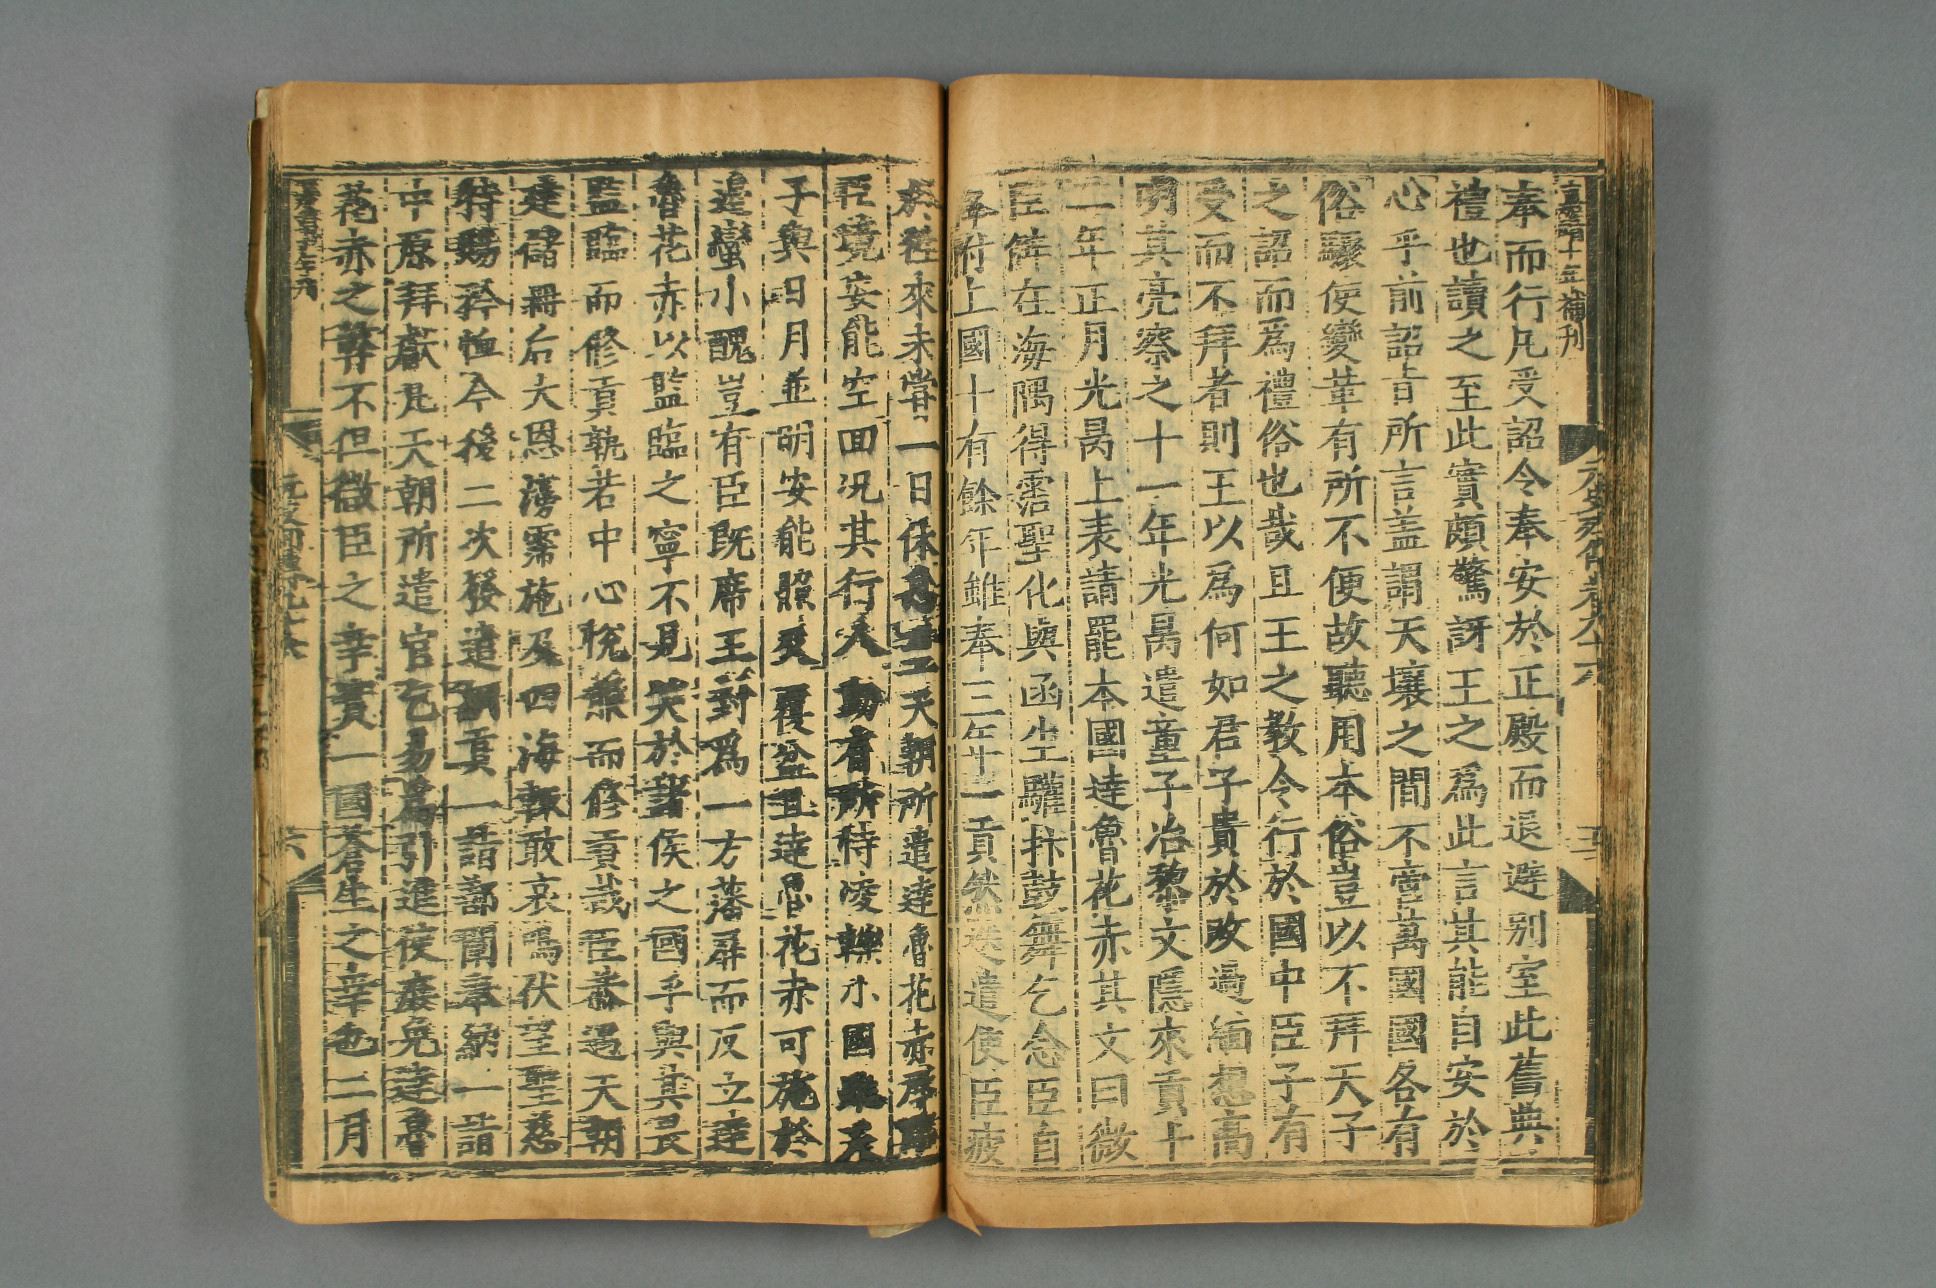 嘉靖十年補刊
元史列傳卷九十六
五
奉而行凡受詔令奉安於正殿而退避别室此舊典
禮也讀之至此實頗驚訝王之爲此言其能自安於
心乎前詔旨所言盖謂天壤之間不啻萬國國各有
俗驟使變革有所不便故聽用本俗豈以不拜天子
之詔而爲禮俗也哉且王之教令行於國中臣子有
受而不拜者則王以爲何如君子貴於改過緬想高
明其亮察之十一年光昺遣童子冶黎文隱來貢十
二年正月光昺上表請罷本國達魯花赤其文曰微
臣僻在海隅得霑聖化與函生驩抃鼓舞乞念臣自
降附上國十有餘年雖奉三年一貢然迭遣使臣疲
於徃來未甞一日休息至天朝所遣達魯花赤辱臨
臣境安能空回况其行人動有所恃凌轢小國雖天
子與日月並明安能照及覆盆且達魯花赤可施於
邉蠻小醜豈有臣旣席王封爲一方藩屏而反立達
魯花赤以監臨之寧不見笑於諸侯之國乎與其畏
監臨而修貢孰若中心悅服而修貢哉臣恭遇天朝
建儲册后大恩霶霈施及四海輒敢哀鳴伏望聖慈
特賜矜恤今後二次發遣綱貢一詣鄯闡奉納一詣
中原拜獻凡天朝所遣官乞易爲引進使庶免達魯
花赤之弊不但微臣之幸實一國蒼生之幸也二月
元史列傳九十六
六